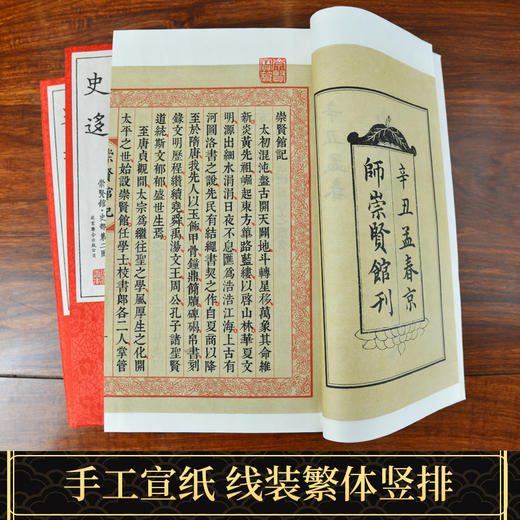 辛丑孟春京
師崇賢館刊
崇賢館記
太初混沌盤古開天闢地斗轉星移萬象其命維
新炎黃先祖崛起東方篳路藍縷以啓山林華夏文
明源出細水涓涓日夜不息匯爲浩浩江海上古有
河圖洛書之說先民有結繩書契之作自夏商以降
至於隋唐我先人以玉飾甲骨鐘鼎簡牘碑碣帛書刻
錄文明歷程纘續堯舜禹湯文王周公孔子諸聖賢
道統斯文郁郁盛世生焉
至唐貞觀間太宗爲繼往聖之學風厚生之化開
太平之世始設崇賢館任學士校書郎各二人掌管
崇賢館記
史
崇賢館·史部第二函
手工宣纸 线装繁体竖排